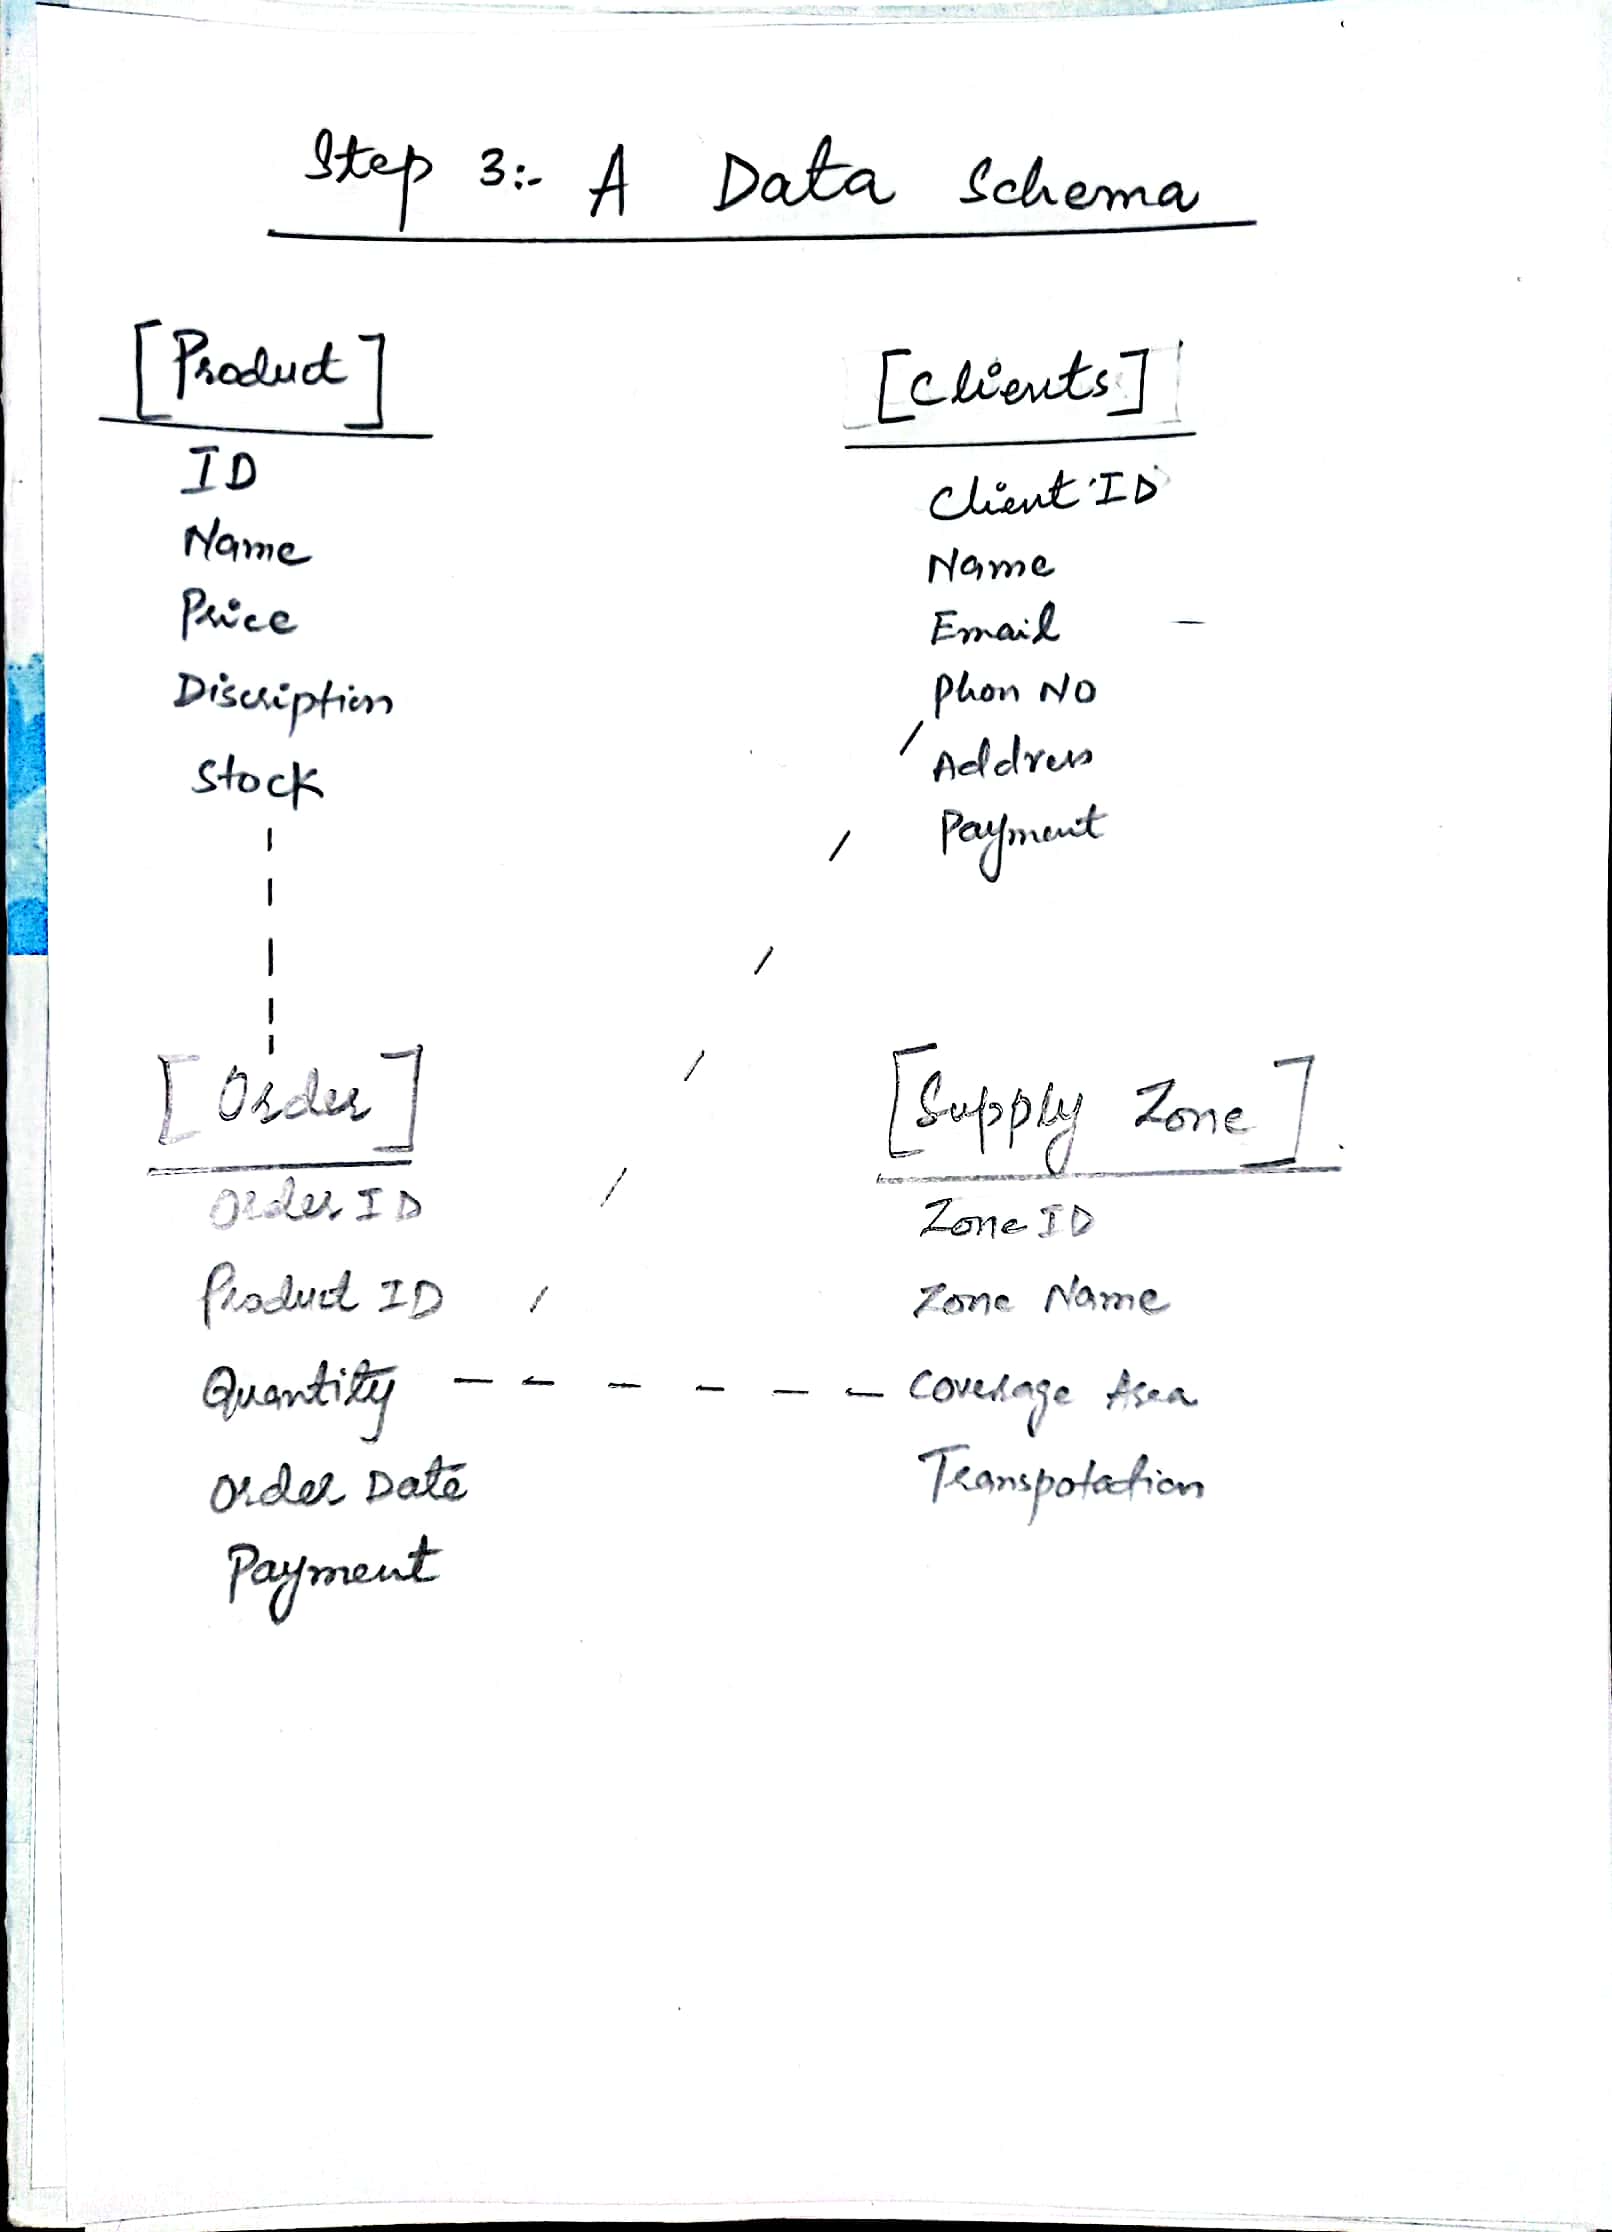 Step 3:- A Data Schema
[Product]
ID
Name
Price
Discription
Stock
[Clients]
Client ID
Name
Email
Phon NO
Address
Payment
[Order]
Order ID
Product ID
Quantity
Order Date
Payment
[Supply Zone]
Zone ID
Zone Name
Coverage Area
Transpotation